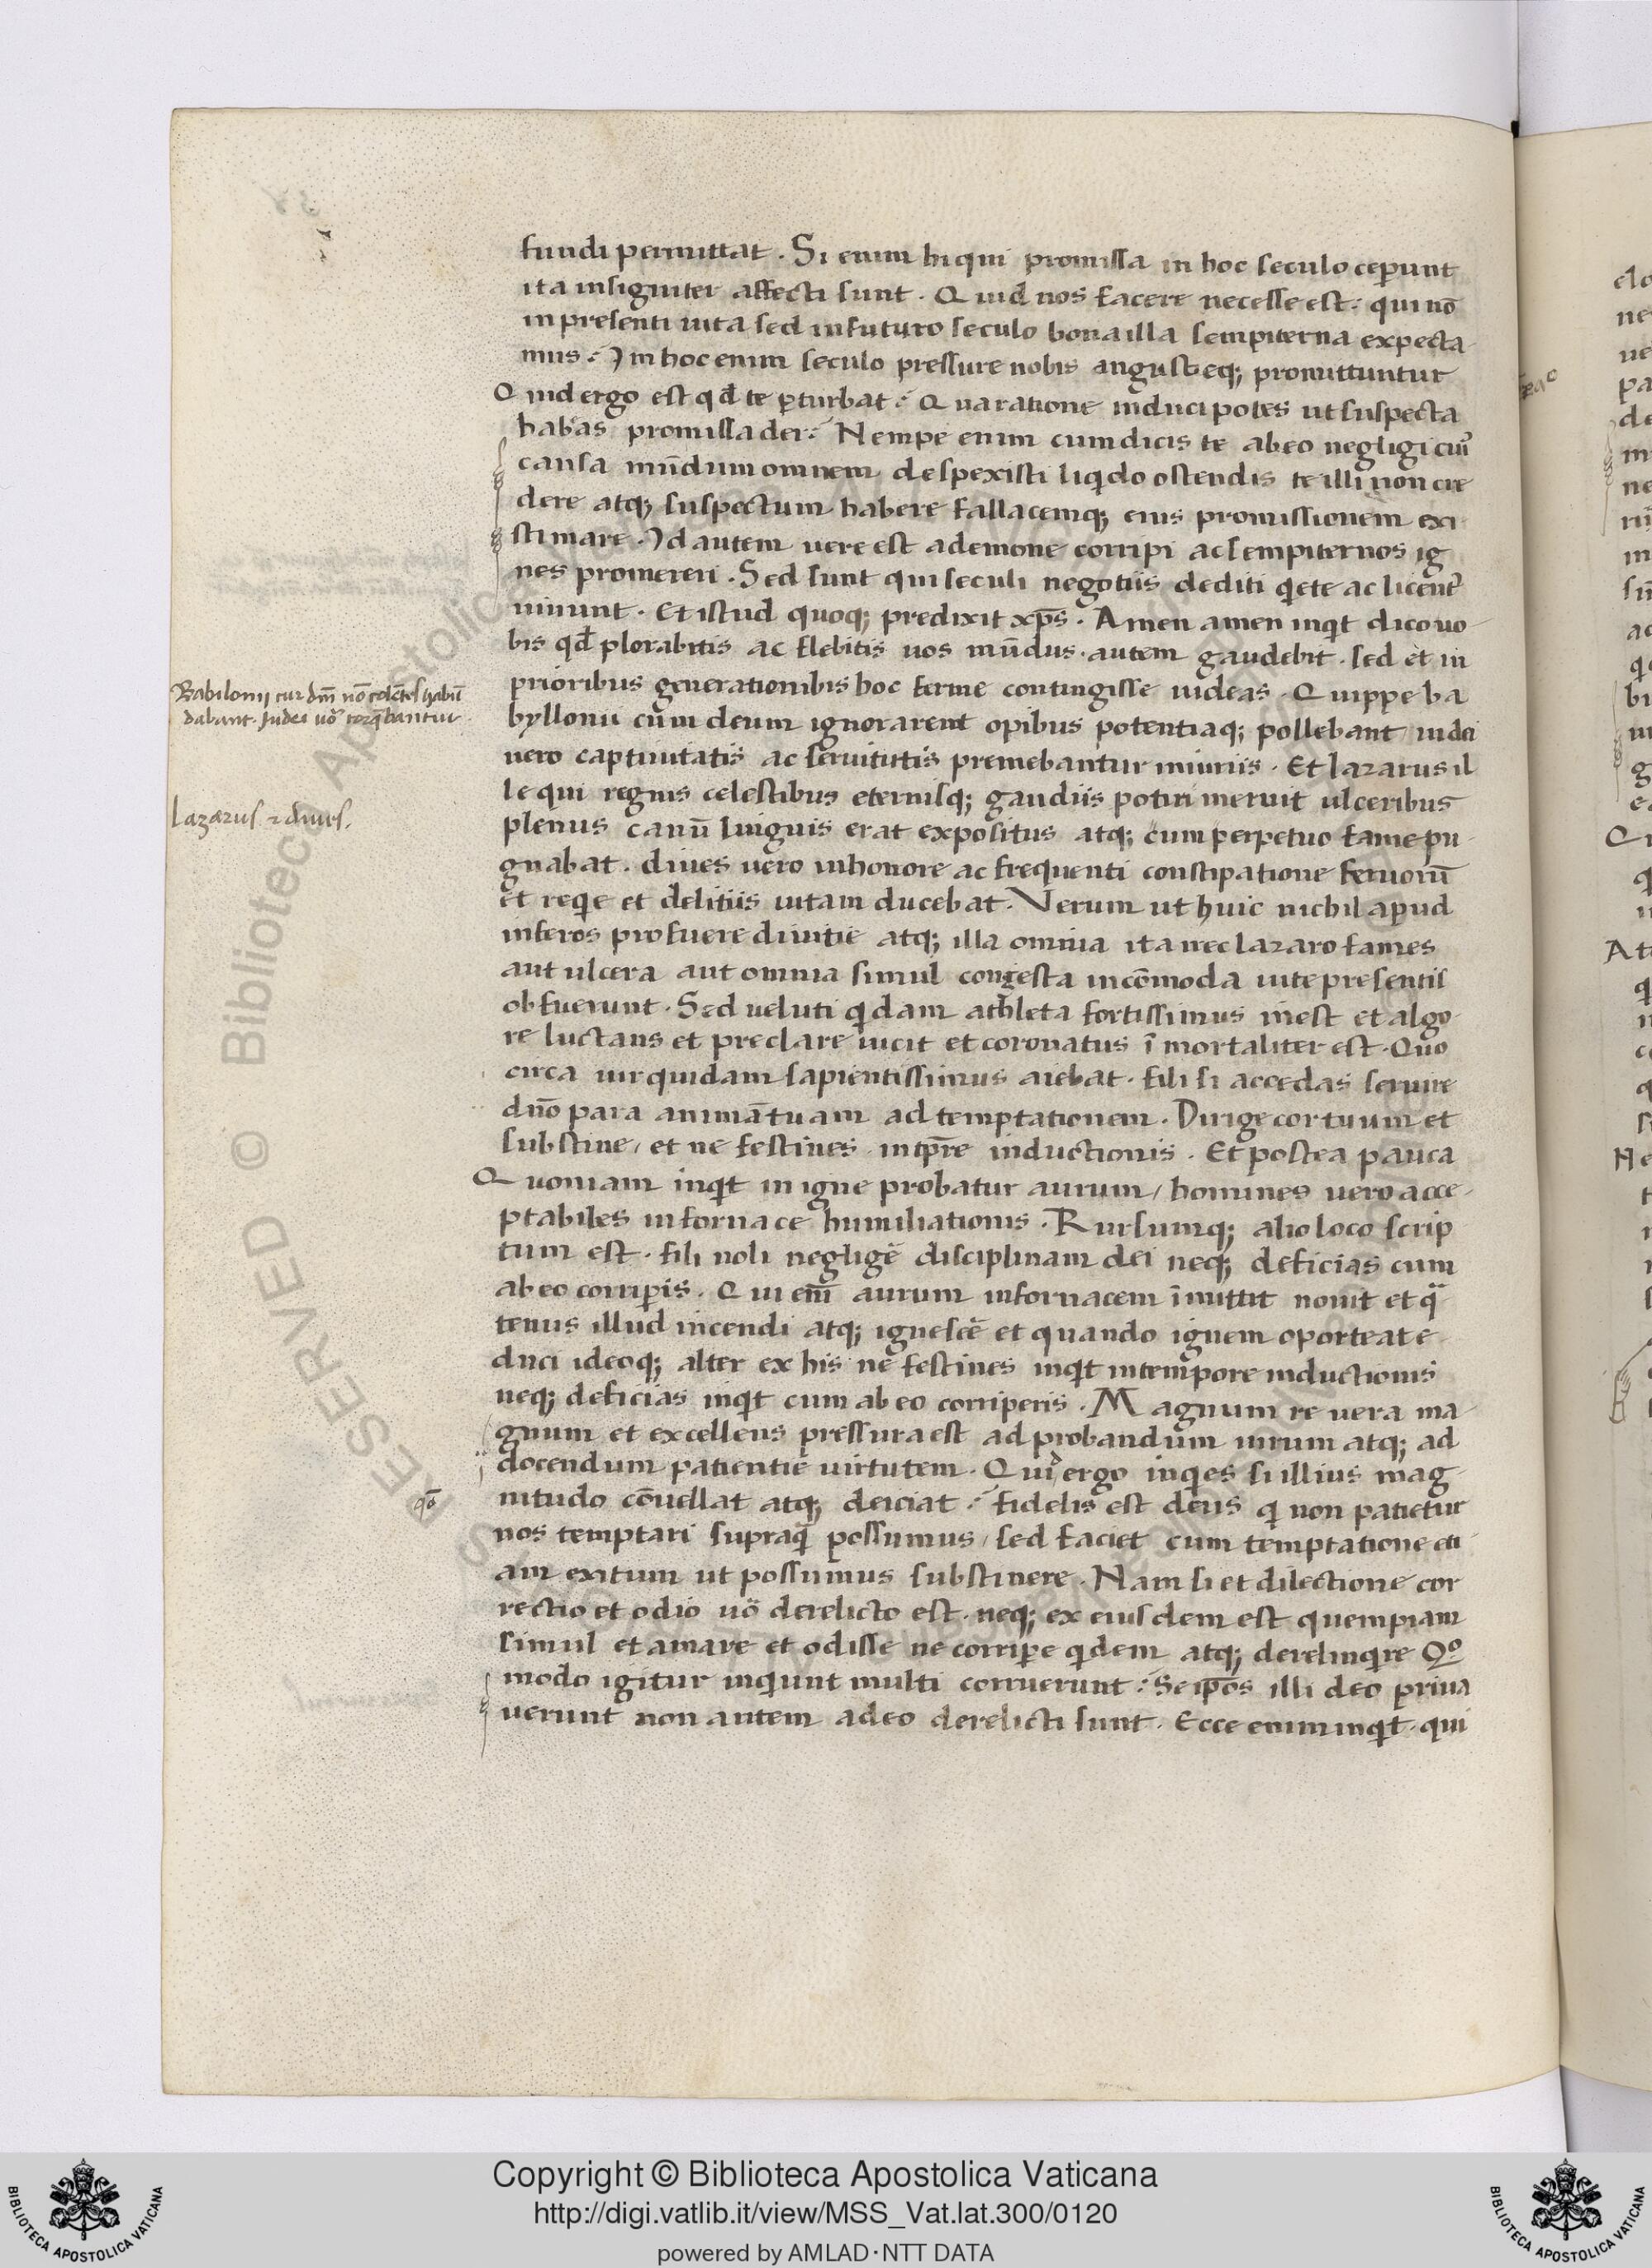 fundi permittat . Si enim hi qui promissa in hoc seculo ceperunt
ita insigniter affecti sunt . Quid nos facere necesse est : qui nō
in presenti uita sed in futuro seculo bona illa sempiterna expecta
mus : In hoc enim seculo pressure nobis angustieq; promittuntur
Quid ergo est qđ te ꝑturbat : Qua ratione induci potes ut suspecta
habeas promissa dei : Nempe enim cum dicis te ab eo negligi cui'
causa mūdum omnem despexisti liqido ostendis te illi non cre
dere atq; suspectum habere fallacemq; eius promissionem exi
stimare . Id autem uere est a demone corripi ac sempiternos ig
nes promereri . Sed sunt qui seculi negotiis dediti qiete ac licent'
uiuunt . Et istud quoq; predixit xp̄s . Amen amen inqit dico uo
bis qđ plorabitis ac flebitis uos mūdus autem gaudebit . sed et in
prioribus generationibis hoc ferme contingisse uideas . Quippe ba
byllonii cum deum ignorarent opibus potentiaq; pollebant iudei
uero captiuitatis ac seruitutis premebantur iniuriis . Et lazarus il
le qui regnis celestibus eternisq; gaudiis potiri meruit ulceribus
plenus canū linguis erat expositus atq; cum perpetuo fame pu
gnabat . diues uero in honore ac frequenti constipatione seruorū
et reqie et delitiis uitam ducebat . Verum ut huic nichil apud
inferos profuere diuitie atq; illa omnia ita nec lazaro fames
aut ulcera aut omnia simul congesta incōmoda uite presentis
obfuerunt . Sed ueluti qidam athleta fortissimus inest et algo
re luctans et preclare uicit et coronatus īmortaliter est . Quo
circa uir quidam sapientissimus aiebat . fili si accedas seruire
dn̄o para animā tuam ad temptationem . Dirige cor tuum et
substine / et ne festines in tp̄re inductionis . Et postea pauca
Quoniam inqit in igne probatur aurum / homines uero acce
ptabiles in fornace humiliationis . Rursumq; alio loco scrip
tum est . fili noli negligē disciplinam dei neq; deficias cum
ab eo corriperis . Qui eni̅ aurum in fornacem īmittit nouit et qua
tenus illud incendi atq; ignescē et quando ignem oporteat e
duci ideoq; alter ex his ne festines inqit in tempore inductionis
neq; deficias inqit cum ab eo corriperis . Magnum re uera ma
gnum et excellens pressura est ad probandum uirum atq; ad
docendum patientie uirtutem . Quid ergo inqies si illius mag
nitudo cōuellat atq; deiciat : fidelis est deus qi non patietur
nos temptari supra qd̄ possumus / sed faciet cum temptatione eti
am exitum ut possimus substinere . Nam si et dilectione cor
rectio et odio uō derelicto est . neq; ex eiusdem est quempiam
simul et amare et odisse ne corripe qidem atq; derelinqire Qº
modo igitur inqiunt multi corruerunt : Seip̄os illi deo priua
uerunt non autem a deo derelicti sunt . Ecce enim inqit . qui
Babilonij cur dm̄ nō colētes habū
dabant . Iudei uō torqbantur .
Lazarus ⁊ diues .
qō
Copyright © Biblioteca Apostolica Vaticana
http://digi.vatlib.it/view/MSS_Vat.lat.300/0120
powered by AMLAD·NTT DATA
BIBLIOTECA APOSTOLICA VATICANA
BIBLIOTECA APOSTOLICA VATICANA